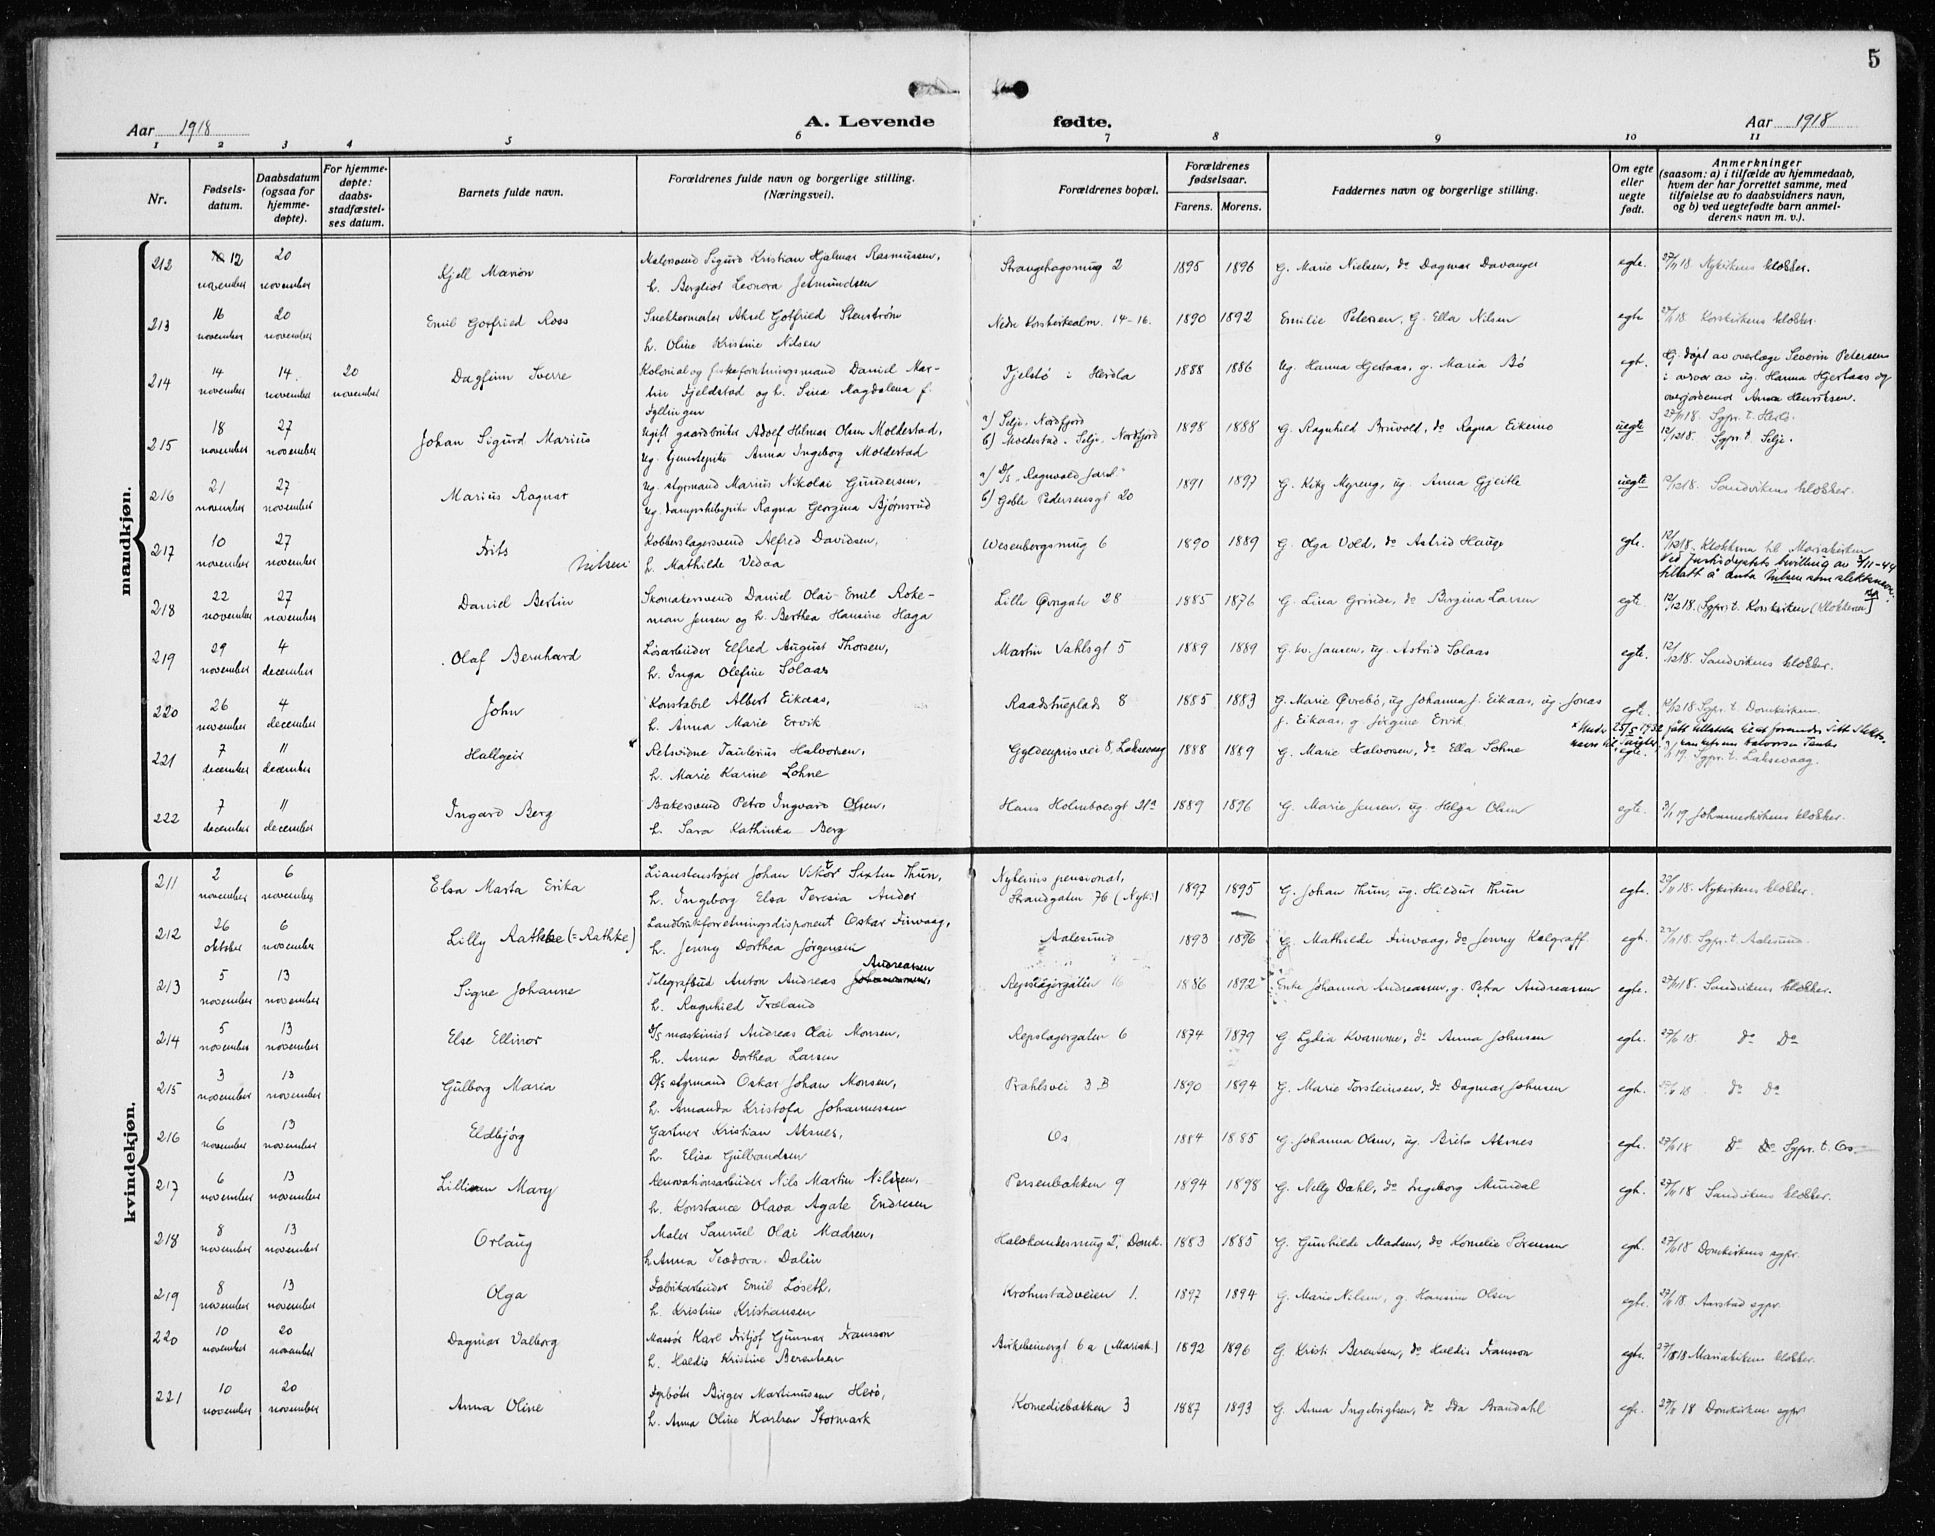 5
Aar 1918 A. Levende fødte. Aar 1918
1 2 3 4 5 6 7 8 9 10 11
Nr.
Fødsels-
datum.
Daabsdatum
(ogsaa for
hjemme-
døpte).
For hjemme-
døpte:
daabs-
stadfæstel-
ses datum.
Barnets fulde navn.
Forældrenes fulde navn og borgerlige stilling.
(Næringsvei).
Forældrenes bopæl.
Forældrenes
fødselsaar.
Farens. Morens.
Faddernes navn og borgerlige stilling.
Om egte
eller
uegte
født.
Anmerkninger
(saasom: a) i tilfælde av hjemmedaab,
hvem der har forrettet samme, med
tilføielse av to daabsvidners navn,
og b) ved uegtefødte barn anmel-
derens navn m. v.).
mandkjøn.
212 12 november 20 november Kjell Marion
Malersvend Sigurd Kristian Hjalmar Rasmussen,
h. Bergliot Leonora Jetmundsen
Strangehagsmug 2 1895 1896 G. Marie Nielsen, do Dagmar Davanger egte. 27/11 18. Nykirkens klokker.
213 16 november 20 november Emil Gotfried Ross
Snekkermester Aksel Gotfried Stenstrøm
h. Oline Kristine Nilsen
Nedre Korskirkealm. 14-16. 1890 1892 Emilie Petersen, G. Ella Nilsen egte 27/11 18. Korskirkens klokker.
214 14 november 14 november 20 november Dagfinn Sverre
Kolonial og fiskeforretningsmand Daniel Mar-
tin Fjeldstad og h. Sina Magdalena f.
Fyllingen
Fjelstø i Herdla 1888 1886 Ug. Hanna Hjertaas, g. Maria Bø egt.
Hj. døpt av overlæge Severin Petersen
i nærvær av ug. Hanna Hjertaas og
overjordemor Anna Henriksen.
27/11 18. Sgpr. t. Herlø.
215 18 november 27 november Johan Sigurd Marius
Ugift gaardbruker Adolf Hilmar Olsen Moldestad,
Ug. tjenestepike Anna Ingeborg Moldestad
a) Selje, Nordfjord
b) Moldestad i Selje, Nordfjord 1898 1888 G. Ragnhild Bruvold, do Ragna Eikemo uegte 12/12 18. Sgpr. t. Selje.
216 21 november 27 november Marius Ragnar
Ug. styrmand Marius Nikolai Gundersen,
Ug. dampskibspike Ragna Georgina Bjørnsrud
a) D/S "Ragnvald Jarl"
b) Geble Pedersensgt 20 1891 1897 G. Kitz Myreng, ug. Anna Gjeitle uegte 12/12 18. Sandvikens klokker.
217 10 november 27 november Frits Nilsen
Kobberslagersvend Alfred Davidsen,
h. Mathilde Vedaa
Wesenbergsmug 6 1890 1889 G. Olga Vold, do Astrid Hauge egte. 12/12 18. Klokkeren til Mariakirken
Ved Justisdeptets bevilling av 3/11-44
tillatt å anta Nilsen som slektsnavn.
218 22 november 27 november Daniel Bertin
Skomakersvend Daniel Olai Emil Roke-
man Jensen og h. Berthea Hansine Haga
Lille Øvregate 28 1885 1876 G. Lina Grinde, do Bergina Larsen egte 12/12 18. (Sgpr.) t. Korskirken (klokkeren)
219 29 november 4 december Olaf Bernhard
Løsarbeider Elfred August Thorsen,
h. Inga Olefine Solaas
Martin Vahlsgt 5 1889 1889 G. kv. Jansen, ug. Astrid Solaas egte. 12/12 18. Sandvikens klokker.
220 26 november 4 december John
Konstabel Albert Eikaas,
h. Anna Marie Ervik
Raadstueplads 8 1885 1883 G. Marie Øvrebø, ug Johanna J. Eikaas, ug Jonas
J. Eikaas, g Jørgine Ervik egte. 12/12 18 Sgpr. t. Domkirken
221 7 december 11 december Hallgeir
x Retsvidne Taulerius Halvorsen,
h. Marie Karine Lohne
Gyldenprisvei 8, Laksevaag 1888 1889 G. Marie Halvorsen, do Ella Lohne egte. 3/1 19. Sgpr. t. Laksevaag.
x Under 25/5 1932 fått tillatelse til at forandre sitt slekts-
navn til
222 7 december 11 december Ingard Berg
Bakersvend Petro Ingvard Olsen,
h. Sara Kathinka Berg
Hans Holmboesgt 21a 1889 1896 G. Marie Jensen, ug. Helga Olsen egte. 3/1 19 Johanneskirkens klokker.
kvindekjøn.
211 2 november 6 november Elsa Marta Erika
Johan Viktor Sixten Thun,
h. Ingeborg Elsa Teresia Ander
Nyheims pensionat,
Strandgaten 76 (Nyk.) 1897 1895 G. Johan Thun, ug. Hildur Thun egte. 27/11 18. Nykirkens klokker.
212 26 oktober 6 november Lilly Rathke (= Rathke)
Landbruksforretningsdisponent Oskar Finvaag,
h. Jenny Dorthea Jørgensen
Aalesund 1893 1896 G. Mathilde Finvaag, do Jenny Kalgraff egte. 27/11 18. Sgpr. t. Aalesund.
213 5 november 13 november Signe Johanne
Telegrafbud Anton Andreas Johannesen, Andreassen
h. Ragnhild Træland
Repslagergaten 16 1886 1892 Enke Johanna Andreassen, g. Petra Andreassen egte. 27/11 18. Sandvikens klokker.
214 5 november 13 november Else Ellinor
D/S maskinist Andreas Olai Monsen,
h. Anna Dorthea Larsen
Repslagergaten 6 1874 1879 G. Lydia Kvamme, do Anna Johnsen egte. 27/11 18. do Do
215 3 november 13 november Gulborg Maria
D/S styrmand Oskar Johan Monsen,
h. Amanda Kristofa Johannessen
Prahlsvei 3 B 1890 1894 G. Marie Torsteinsen, do Dagmar Johnsen egte. 27/11 18 do Do
216 6 november 13 november Eldbjørg
Gartner Kristian Aksnes,
h. Elisa Gulbrandsen
Os 1884 1885 G. Johanna Olsen, ug. Brita Aksnes egte. 27/11 18 Do Do Sgpr. t. Os.
217 6 november 13 november Lillian Mary
Renovationsarbeider Nils Martin Nilsen,
h. Konstance Olava Agate Endresen
Persenbakken 9 1894 1898 G. Nelly Dahl, do Ingeborg Mundal egte. 27/11 18 Sandvikens klokker.
218 8 november 13 november Orlaug
Maler Samuel Olai Madsen,
h. Anna Teodora Dalin
Halvkandesmug 2, Domk. 1883 1885 G. Gunhilde Madsen, do Kornelie Sørensen egte. 27/11 18 Domkirkens sgpr.
219 8 november 13 november Olga
Fabrikarbeider Emil Løseth,
h. Kristine Kristiansen
Krohnstadveien 1. 1897 1894 G. Marie Nilsen, g. Hansine Olsen egte. 27/11 18. Aarstad sgpr.
220 10 november 20 november Dagmar Valborg
Massør Karl Fritjof Gunnar Fransson
h. Haldis Kristine Berentsen
Birkebeinergt 6a (Mariak.) 1892 1896 G. Kristi Berentsen, do Haldis Fransson egte. 27/11 18 Mariakirkens klokker.
221 10 november 20 november Anna Oline
Fyrbøter Birger Martinussen Herø,
h. Anna Oline Karlsen Stormark
Komediebakken 3 1887 1893 G. Anna Ingebrigtsen, do Ida Brandahl egte. 27/11 18 Domkirkens sgpr